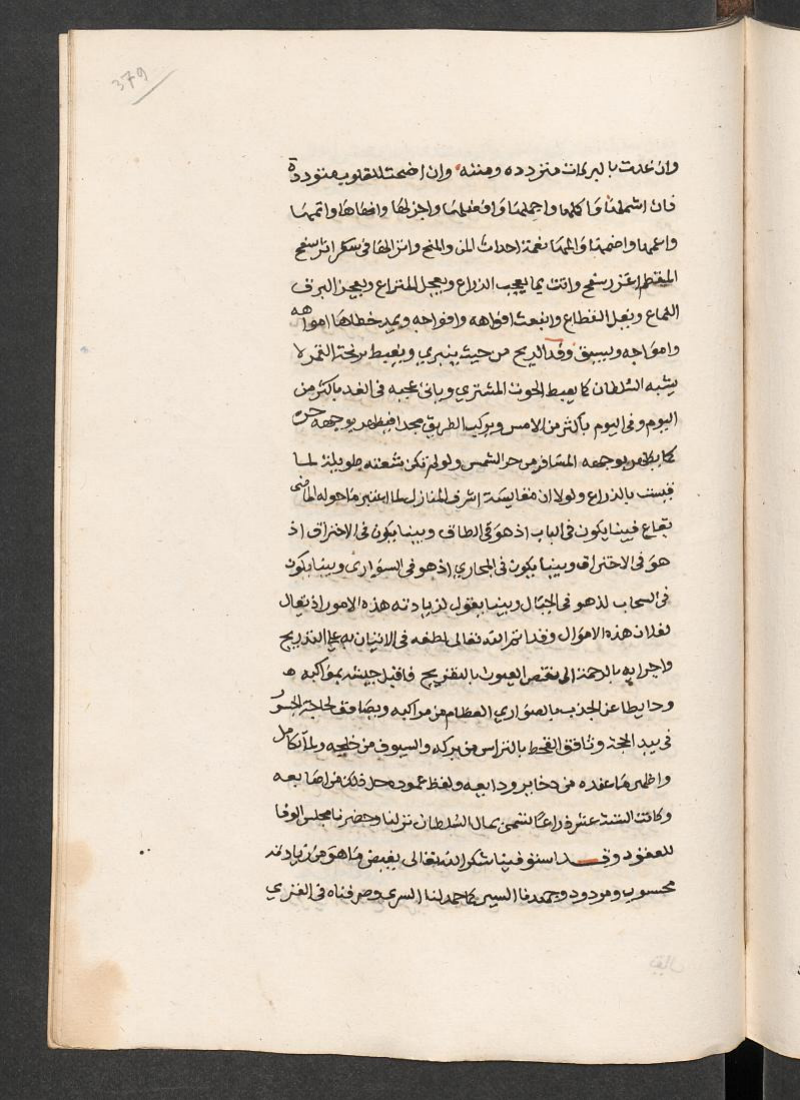 379
وان غدت بالبركات متردده ومننه وان اضحت للقلوب متوددة
فان اشملها واكملها واجملها وافضلها واجزلها وانهاها واتمها
واعمها واضمها والمها نعمة اجدات المن والمنح وانزالها في سفر اثر سفح
المقطم اغزر سفح واتت بما يعجب الزراع ويعجل الهراع ويعجز البرق
اللماع ويغل القطاع وانبعث افواهه وافواجه ويمد خطاها امواهه
وامواجه ويسبق وفد الريح من حيث ينبري ويغبط مريخه القمر لا
يشبه السلطان كما يغبط الحوت المشتري وياتي عجبه في الغد باكثر من
اليوم وفي اليوم باكثر من الامس ويركب الطريق مجدا فيظهر بوجهه حمرة
كما يظهر بوجهه المسافر من حر الشمس ولو لم تكن شقته طويلة لما
قيست بالذراع ولولا ان مقايسه اشرف المنازل لما اعتبر ما حوله الماضي
بقاع فبينا يكون في الباب اذ هو في الطاق وبينا يكون في الاحتراق اذ
هو في الاختراق وبينا يكون في المجاري اذ هو في السواري وبينا يكون
في السحاب اذ هو في الجبال وبينا يقول لزيادته هذه الامور اذ يقال
لغلات هذه الاموال وقد اتم الله تعالى لطفه في الاتيان به على التدريج
واجرايه بالرحمة الى نقص العيون بالتفريج فاقبل جيشه بمواكبه
وحا بطا عن الجدب بالصواري العظام من مراكبه ويصافف لحاجة الجسور
في بيد اللجة وثاقف القحط بالتراس من بركه والسيوف من خليجه ولما تكامل
واظهر ما عنده من ذخاير ودايعه ولفظ عموده حل ذلك من اصابعه
وكانت الستة عشر ذراعا تسمى بماء السلطان نزلنا وحضرنا مجلس الوفا
للعقود وقد استوفينا شكر الله تعالى بفيض ما هو من زيادته
محسوب ومردود وحمدنا السير كما حمد لنا السرى وصرفناه في القرى